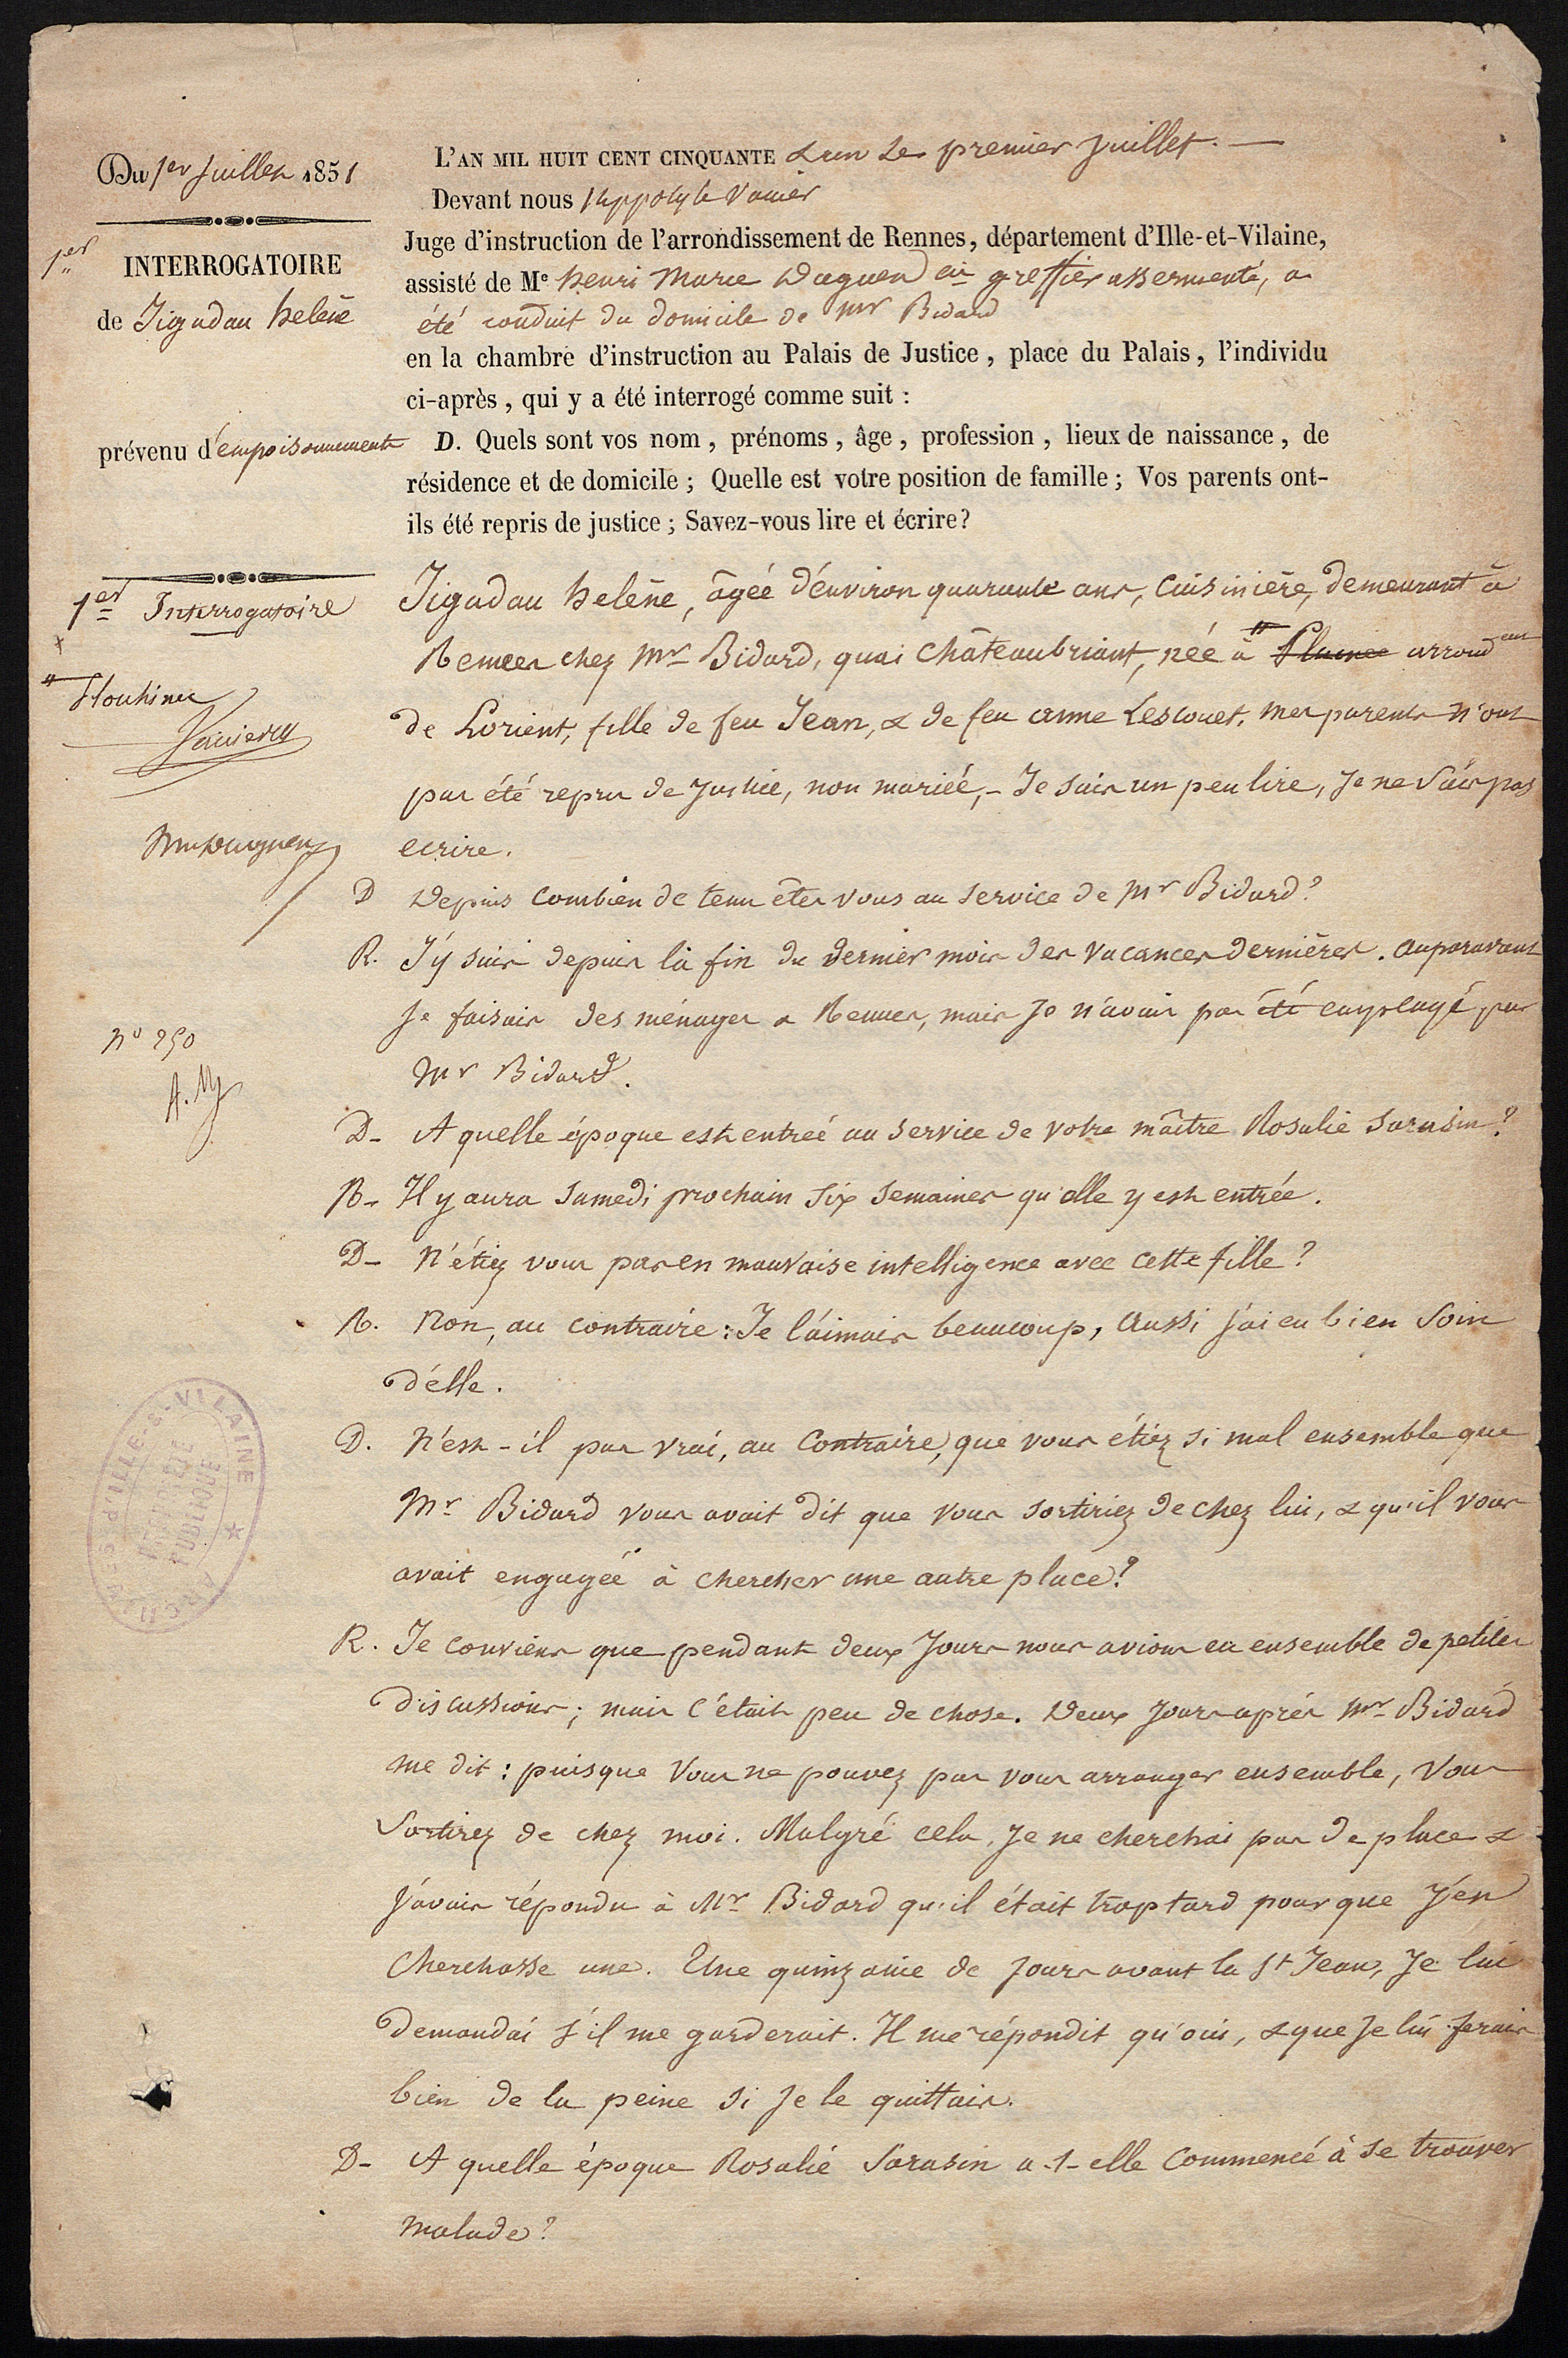 Du 1er Juillet 1851
1er
INTERROGATOIRE
de Jigadau heléne
prévenu d'empoisonnement
1er Interrogatoire
x
" Plouhinec
Vannier
Mie Daguen
no 250
A. M
ARCHIVES D'ILLE-&-VILAINE ★
PROPRIÉTÉ
PUBLIQUE
L'AN MIL HUIT CENT CINQUANTE & un Le premier Juillet. —
Devant nous hyppolyte Vanier
Juge d'instruction de l'arrondissement de Rennes, département d'Ille-et-Vilaine,
assisté de Me henri Marie Daguen greffier assermenté, a
été conduit du domicile de Mr Bidard
en la chambre d'instruction au Palais de Justice, place du Palais, l'individu
ci-après, qui y a été interrogé comme suit :
D. Quels sont vos nom, prénoms, âge, profession, lieux de naissance, de
résidence et de domicile ; Quelle est votre position de famille ; Vos parents ont-
ils été repris de justice ; Savez-vous lire et écrire?
Jigadau heléne, âgée d'environ quarante ans, Cuisinière, demeurant à
Rennes chez Mr Bidard, quai Châteaubriant, née à " arrondent
de Lorient, fille de feu Jean, & de feu anne Lescouet, mes parents n'ont
pas été repris de Justice, non mariée, - Je sais un peu lire, Je ne sais pas
ecrire.
D Depuis combien de tems êtes vous au service de Mr Bidard?
R. J'y suis depuis la fin du dernier mois des vacances dernières. auparavant
Je faisais des ménages a Rennes, mais Je n'avais pas été employé par
Mr Bidard.
D- A quelle époque est entrée au service de votre maître Rosalie Sarasin?
R- Il y aura samedi prochain six semaines qu'elle y est entrée.
D- N'étiez vous pas en mauvaise intelligence avec cette fille?
R. Non, au contraire : Je l'aimais beaucoup, aussi j'ai eu bien soin
d'elle.
D. N'est-il pas vrai, au contraire, que vous étiez si mal ensemble que
Mr Bidard vous avait dit que vous sortiriez de chez lui, & qu'il vous
avait engagée à chercher une autre place?
R. Je conviens que pendant deux Jours nous avions eu ensemble de petites
discussions ; mais c'était peu de chose. Deux Jours après Mr Bidard
me dit : puisque vous ne pouvez pas vous arranger ensemble, vous
sortirez de chez moi. Malgré cela, Je ne cherchai pas de place &
J'avais répondu à Mr Bidard qu'il était trop tard pour que J'en
cherchasse une. Une quinzaine de Jours avant la St Jean, Je lui
demandai s'il me garderait. Il me répondit qu'oui, & que Je lui ferais
bien de la peine si Je le quittais.
D- A quelle époque Rosalie Sarasin a-t-elle commencé à se trouver
malade?